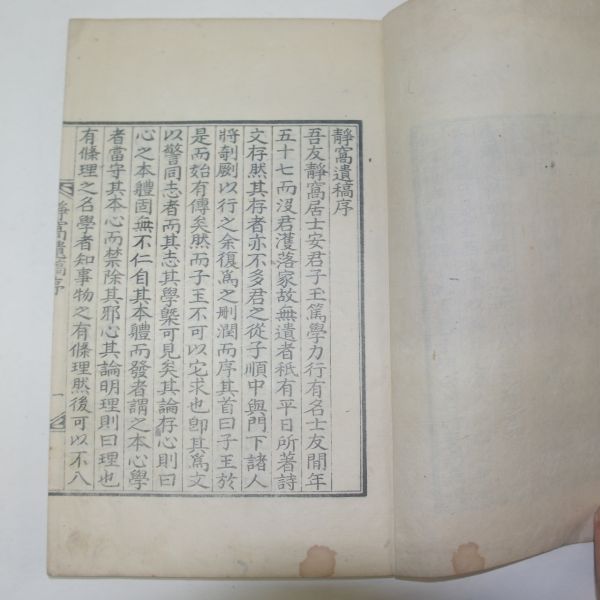 靜窩遺稿序
吾友靜窩居士安君子玉篤學力行有名士友間年
五十七而沒君濩落家故無遺者秖有平日所著詩
文存然其存者亦不多君之從子順中與門下諸人
將剞劂以行之余復爲之刪潤而序其首曰子玉於
是而始有傳矣然而子玉不可以它求也卽其爲文
以警同志者而其志其學槩可見矣其論存心則曰
心之本體固無不仁自其本體而發者謂之本心學
者當守其本心而禁除其邪心其論明理則曰理也
有條理之名學者知事物之有條理然後可以不八
靜窩遺稿序
一